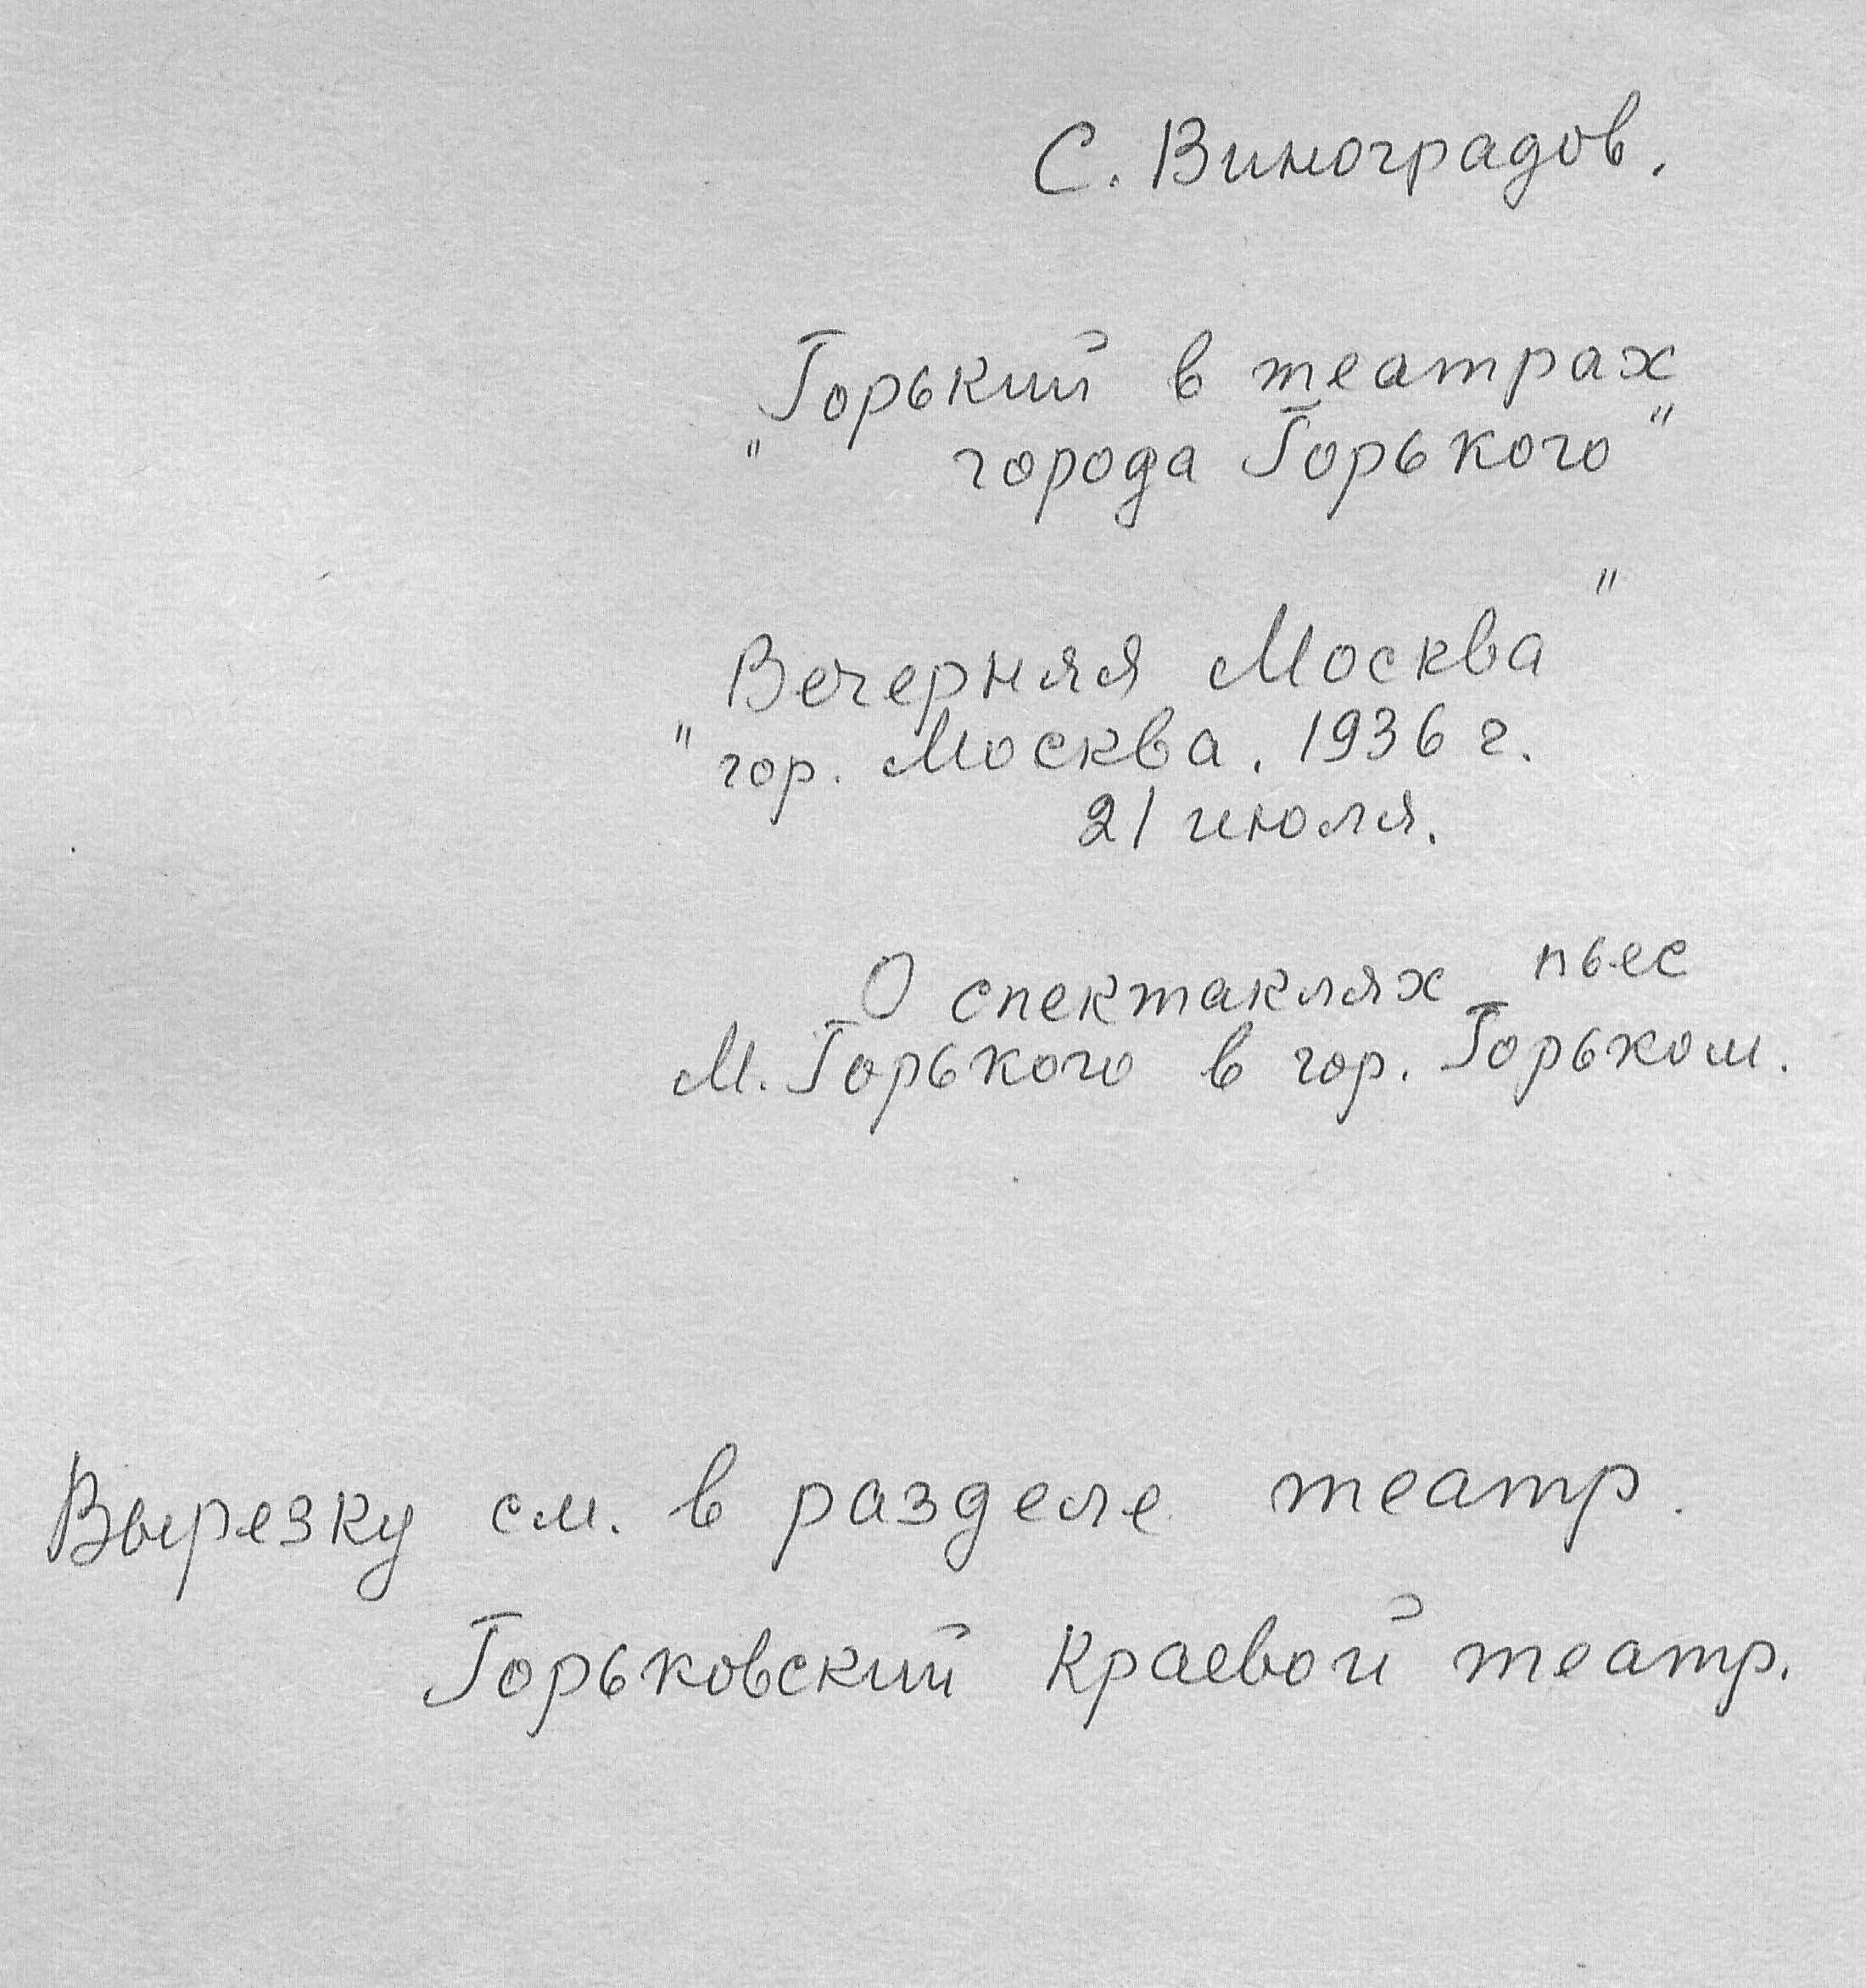 С. Виноградов.
"Горький в театрах
города Горького"
"Вечерняя Москва"
гор. Москва. 1936 г.
21 июля.
О спектаклях пьес
М. Горького в гор. Горьком.
Вырезку см. в разделе театр.
Горьковский Краевой театр.